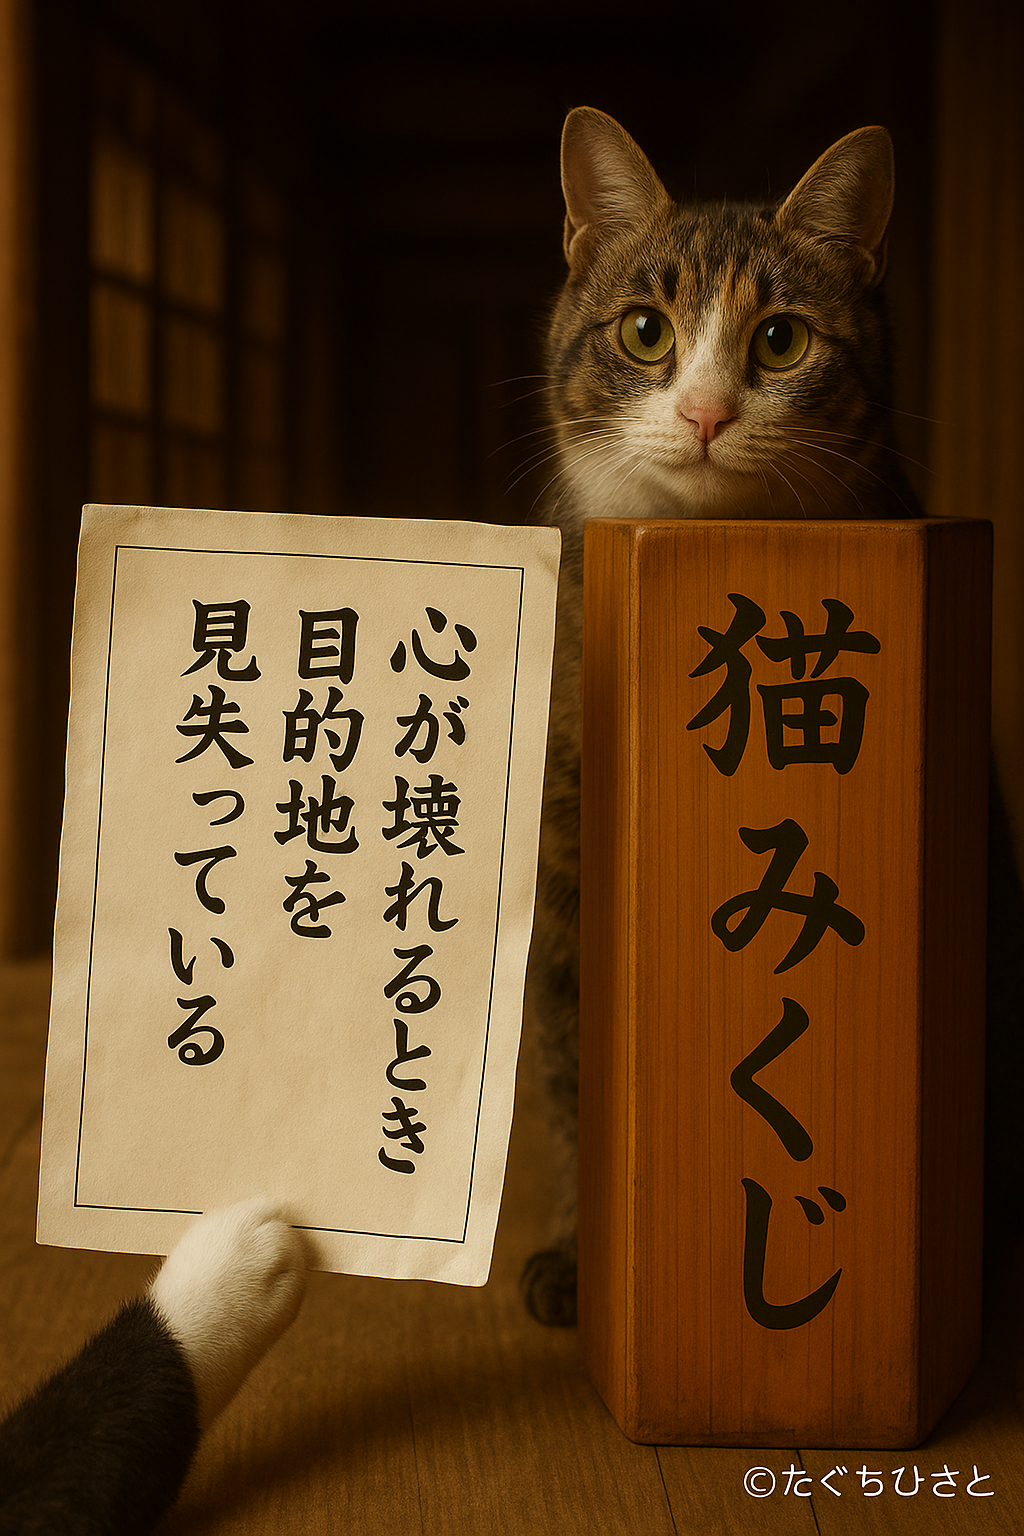 心が壊れるとき
目的地を
見失っている
猫みくじ
©たぐちひさと